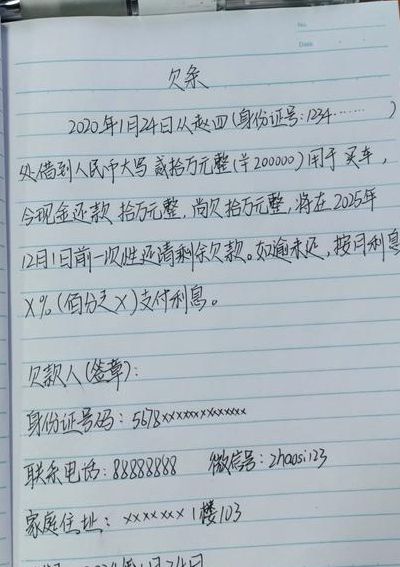 No.
Date
欠条
2020年1月24日从赵四(身份证号:1234……… )
处借到人民币大写 贰拾万元整(¥200000)用于买车,
今现金还款 拾万元整,尚欠拾万元整,将在2025年
12月1日前一次性还清剩余欠款。如逾未还,按月利息
X%(佰分之X)支付利息。
欠款人(签章):
身份证号码:5678xxxxxxxxxxxxx
联系电话:88888888 微信号:zhaosi123
家庭住址:xxxxxxx1楼103